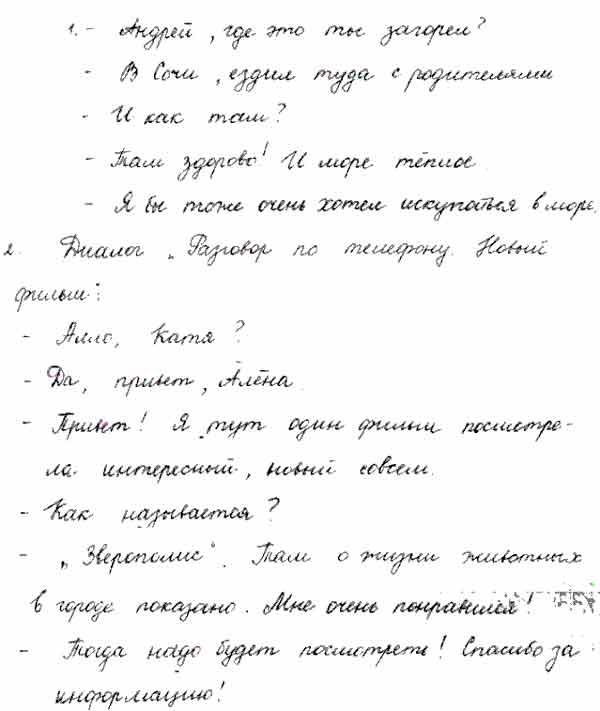 1. – Андрей, где это ты загорел?
- В Сочи, ездил туда с родителями
- И как там?
- Там здорово! И море тёплое.
- Я бы тоже очень хотел искупаться в море.
2. Диалог „Разговор по телефону. Новый
фильм":
- Алло, Катя?
- Да, привет, Алёна.
- Привет! Я тут один фильм посмотре-
ла интересный, новый совсем.
- Как называется?
- „Зверополис". Там о жизни животных
в городе показано. Мне очень понравился!
- Тогда надо будет посмотреть! Спасибо за
информацию!